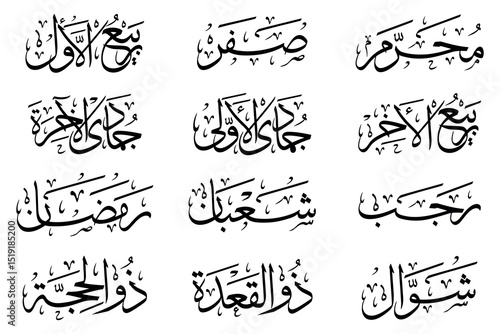 محرّم صفر ربيع الأول
ربيع الأخر جمادى الأولى جمادى الآخرة
رجب شعبان رمضان
شوّال ذو القعدة ذو الحجّة
Adobe Stock | #1519185200